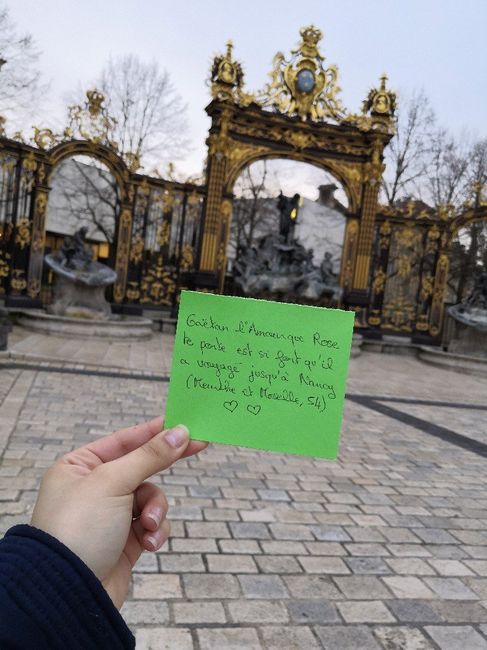 Gaëtan l'Amour que Rose
te porte est si fort qu'il
a voyagé jusqu'à Nancy
(Meurthe et Moselle, 54)
♡ ♡